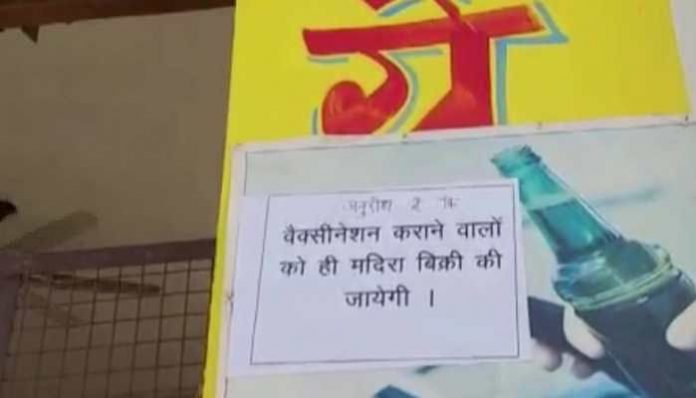 ये
अनुरोध है कि
वैक्सीनेशन कराने वालों
को ही मदिरा बिक्री की
जायेगी ।